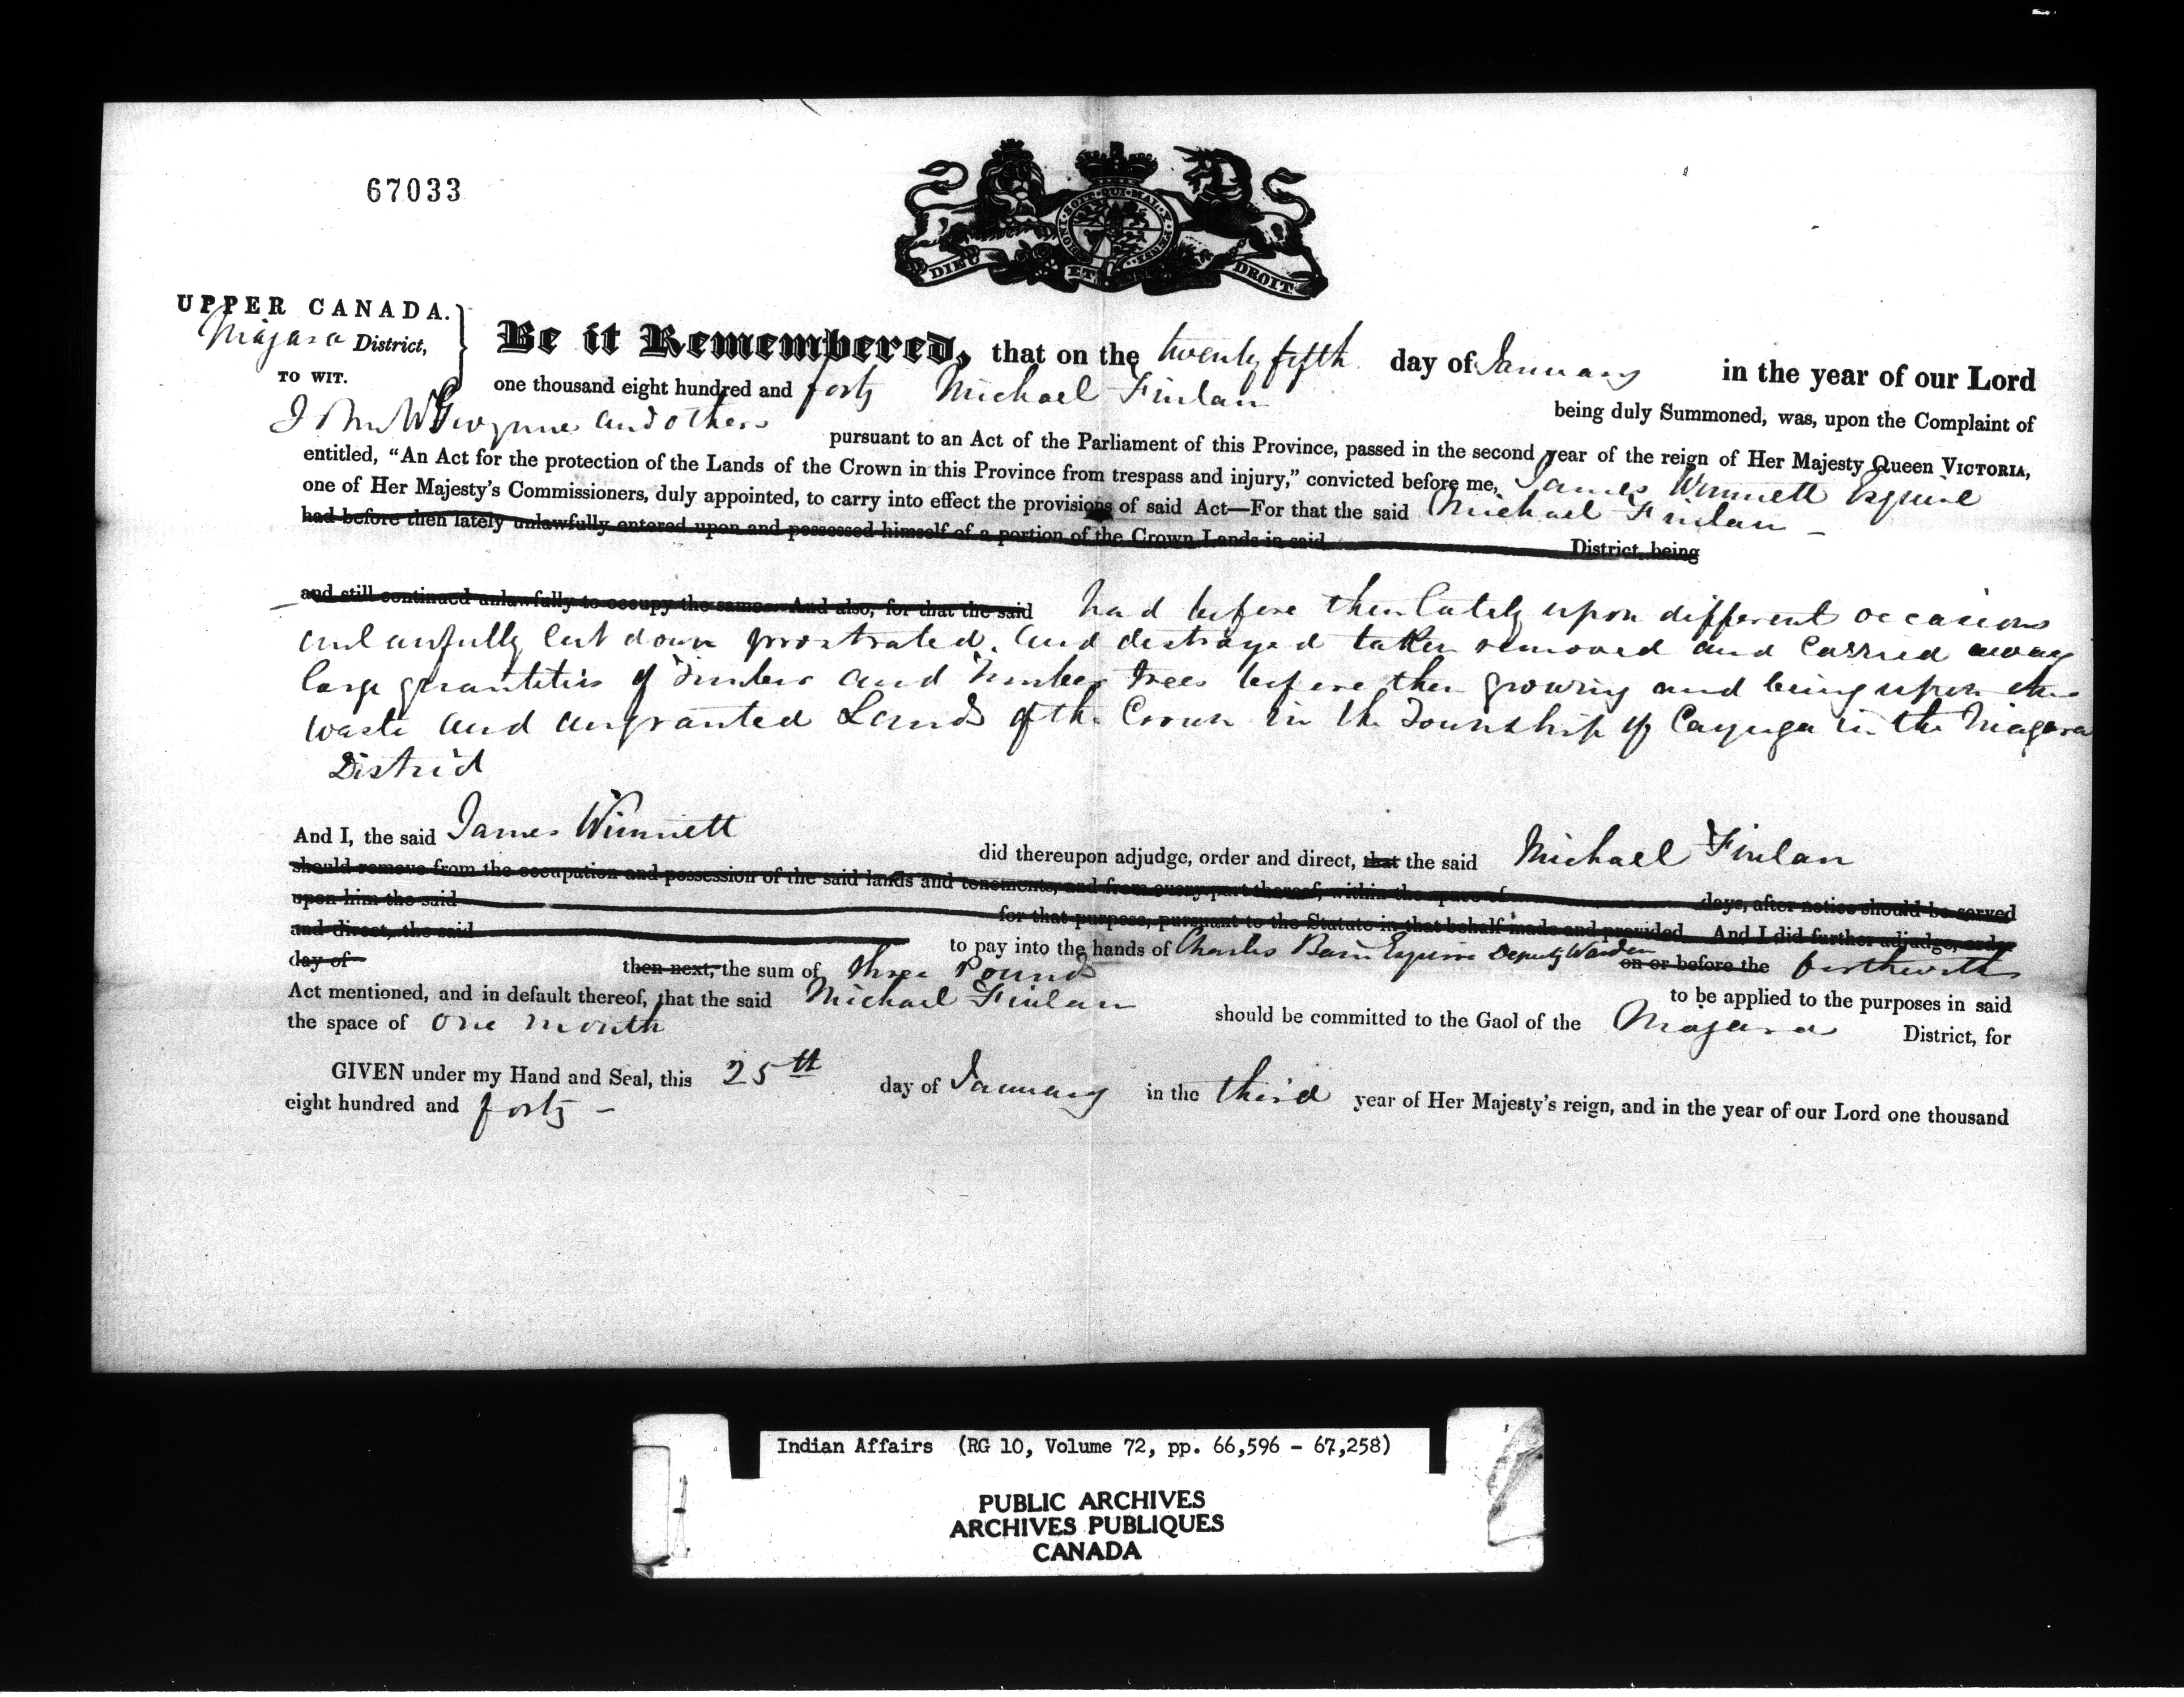 67033
HONI · SOIT · QUI · MAL · Y · PENSE
DIEU ET DROIT
UPPER CANADA.
Niagara District,
TO WIT.
Be it Remembered, that on the twenty fifth day of January in the year of our Lord
one thousand eight hundred and forty Michael Finlan being duly Summoned, was, upon the Complaint of
John W Gwynne and others pursuant to an Act of the Parliament of this Province, passed in the second year of the reign of Her Majesty Queen VICTORIA,
entitled, "An Act for the protection of the Lands of the Crown in this Province from trespass and injury," convicted before me, James Winniett Esquire
one of Her Majesty's Commissioners, duly appointed, to carry into effect the provisions of said Act—For that the said Michael Finlan –
had before then lately unlawfully entered upon and possessed himself of a portion of the Crown Lands in said District, being
and still continued unlawfully to occupy the same. And also, for that the said had before then lately upon different occasions
unlawfully cut down prostrated. and destroyed taken removed and carried away
large quantities of Timber and Timber trees before then growing and being upon the
waste and ungranted Lands of the Crown in the Township of Cayuga in the Niagara
District
And I, the said James Winniett did thereupon adjudge, order and direct, that the said Michael Finlan
should remove from the occupation and possession of the said lands and tenements, and from every part thereof, within the space of days, after notice should be served
upon him the said for that purpose, pursuant to the Statute in that behalf made and provided. And I did further adjudge, order
and direct, the said to pay into the hands of Charles Bain Esquire Deputy Warden on or before the forthwith
day of then next, the sum of three Pounds to be applied to the purposes in said
Act mentioned, and in default thereof, that the said Michael Finlan should be committed to the Gaol of the Niagara District, for
the space of one month
GIVEN under my Hand and Seal, this 25th day of January in the third year of Her Majesty's reign, and in the year of our Lord one thousand
eight hundred and forty –
Indian Affairs (RG 10, Volume 72, pp. 66,596 - 67,258)
PUBLIC ARCHIVES
ARCHIVES PUBLIQUES
CANADA